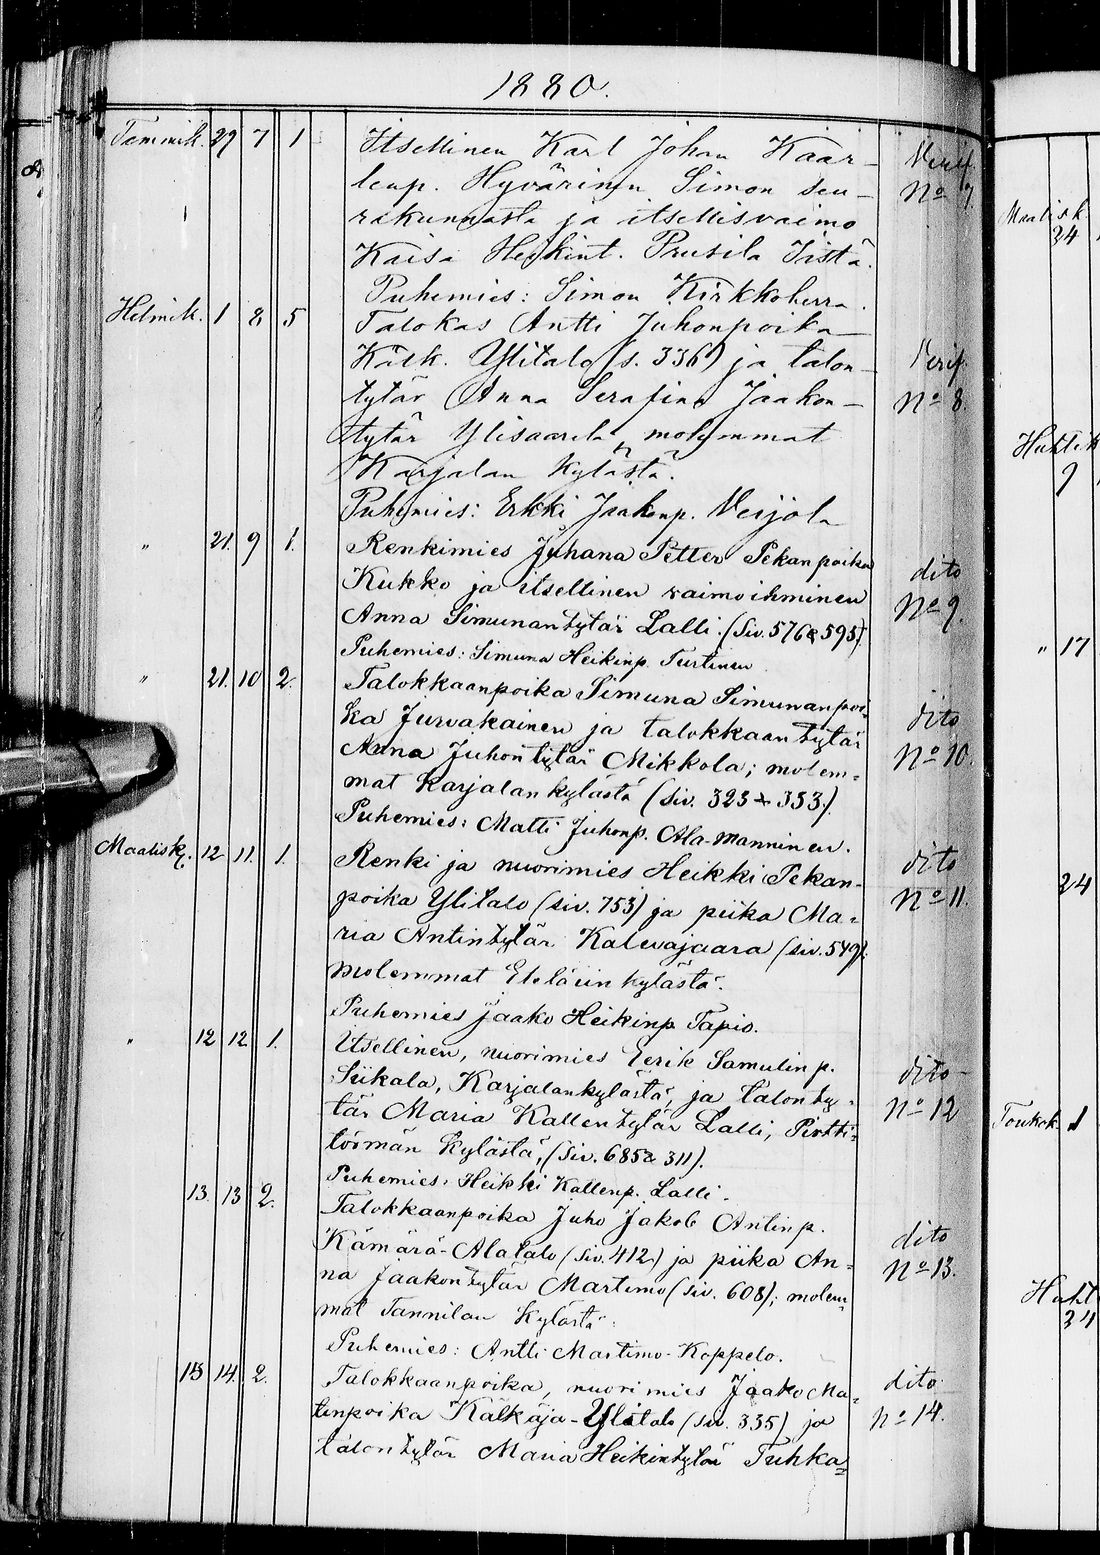 1880.
Tammik. 29 7 1 Itsellinen Karl Johan Kaar- Verif.
lenp. Hyvärinen Simon seu- No 7.
rakunnasta ja itsellisvaimo
Kaisa Heikint. Prusila Iistä.
Puhemies: Simon Kirkkoherra.
Helmik. 1 8 5 Talokas Antti Juhonpoika
Kälk. Ylitalo (s. 336) ja talon- Verif.
tytär Anna Serafina Jaakon- No 8.
tytär Ylisaarela, molemmat
Karjalan kylästä.
Puhemies: Erkki Jaakonp. Veijola
" 21. 9 1. Renkimies Juhana Petter Pekanpoika dito
Kukko ja itsellinen vaimoihminen No 9.
Anna Simunantytär Lalli. (Siv. 576 & 595).
Puhemies: Simuna Heikinp. Turtinen
" 21. 10 2. Talokkaanpoika Simuna Simunanpoi- dito
ka Jurvakainen ja talokkaantytär No 10.
Anna Juhontytär Mikkola; molem-
mat Karjalankylästä (siv. 323 & 353.)
Puhemies: Matti Juhonp. Ala-Manninen.
Maalisk. 12 11. 1. Renki ja nuorimies Heikki Pekan- dito
poika Ylitalo (siv. 753) ja piika Ma- No 11.
ria Antintytär Kalevajaara (siv. 549).
molemmat Eteläiin kylästä.
Puhemies Jaako Heikinp Tapio.
" 12 12. 1. Itsellinen, nuorimies Eerik Samulinp. dito
Siikala, Karjalankylästä, ja talonty- No 12
tär Maria Kallentytär Lalli, Pirtti-
törmän kylästä, (siv. 685 & 311).
Puhemies: Heikki Kallenp. Lalli.
13. 13 2. Talokkaanpoika Juho Jakob Antinp. dito
Kämärä-Alatalo (siv. 412) ja piika An- No 13.
na Jaakontytär Martimo (siv. 608); molem-
mat Tannilan kylästä.
Puhemies: Antti Martimo-Koppelo.
15 14. 2. Talokkaanpoika, nuorimies Jaako Ma- dito
tinpoika Kälkäjä-Ylitalo (siv. 335) ja No 14.
talontytär Maria Heikintytär Tuhka-
Maalisk.
24
Huhtik
9
" 17
24
Toukok. 1
Huht
24